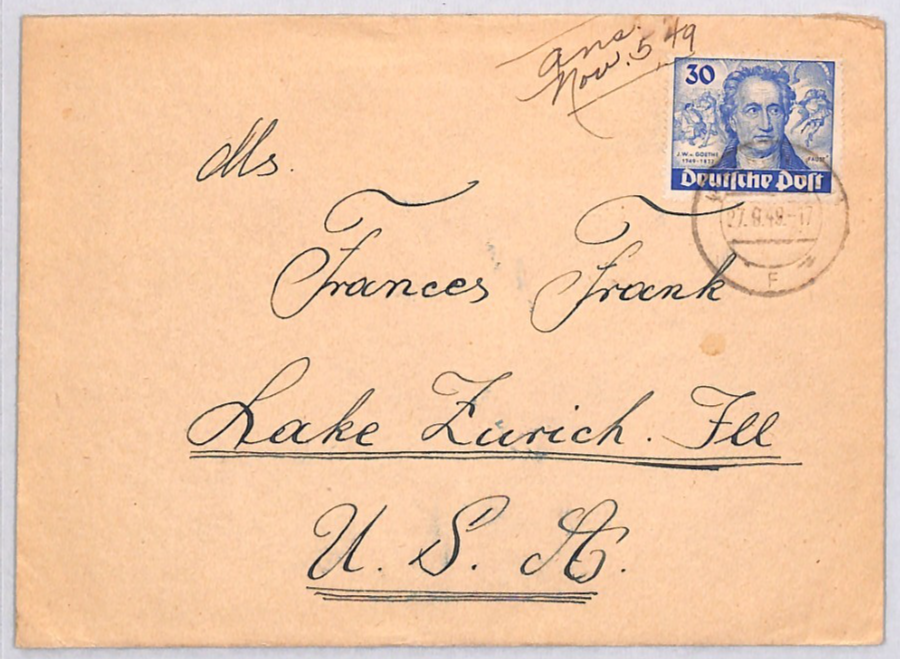 ans.
Nov. 5, 49
30
J.W.v. GOETHE
1749-1832
FAUST
Deutsche Post
27.9.49.-17
F
Ms.
Frances Frank
Lake Zurich. Ill
U. S. A.